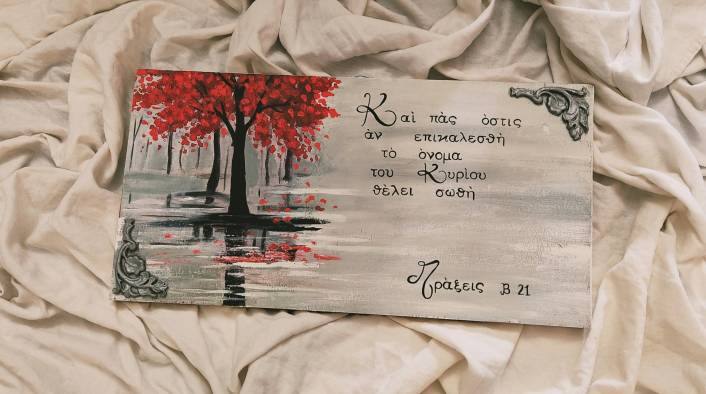 Καὶ πὰς ὁστις
ἀν επικαλεσθὴ
τὸ ὀνομα
του Κυρὶου
θὲλει σωθὴ
Πρὰξεις Β 21